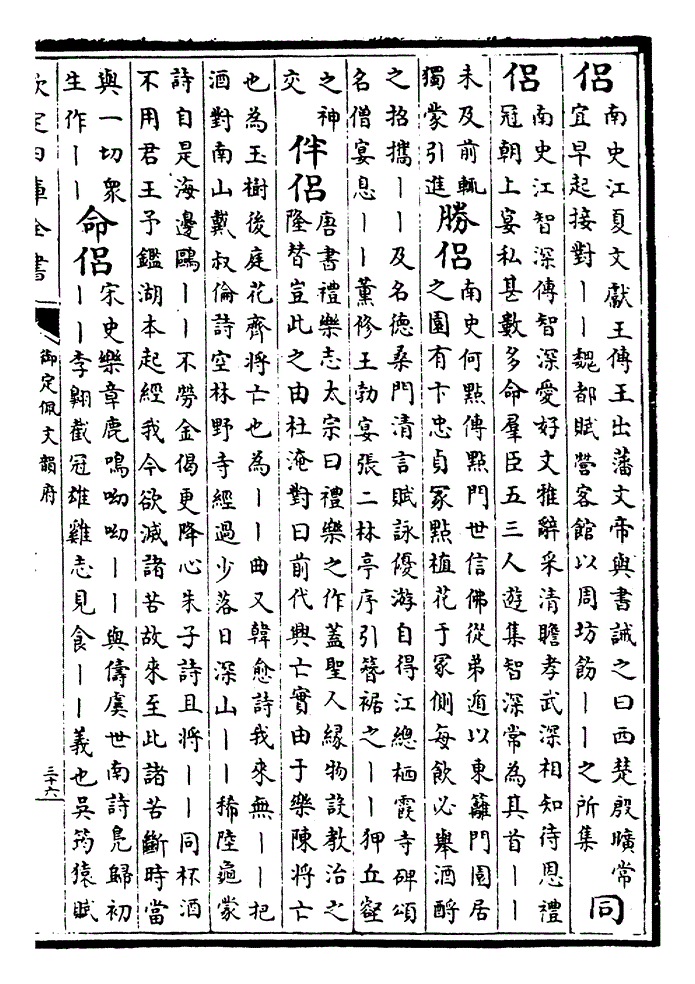 侶
南史江夏文獻王傳王出藩文帝與書誡之曰西楚殷曠常
宜早起接對丨丨魏都賦營客館以周坊飭丨丨之所集
同
侶
南史江智深傳智深愛好文雅辭采清贍孝武深相知待恩禮
冠朝上宴私甚數多命羣臣五三人遊集智深常為其首丨丨
未及前輒
獨蒙引進
勝侶
南史何點傳點門世信佛從弟遁以東籬門園居
之園有卞忠貞冢點植花于冢側每飲必舉酒酹
之招攜丨丨及名德桑門清言賦詠優游自得江總栖霞寺碑頌
名僧宴息丨丨薰修王勃宴張二林亭序引簪裾之丨丨狎丘壑
之神
交
伴侶
唐書禮樂志太宗曰禮樂之作蓋聖人緣物設教治之
隆替豈此之由杜淹對曰前代興亡實由于樂陳將亡
也為玉樹後庭花齊將亡也為丨丨曲又韓愈詩我來無丨丨把
酒對南山戴叔倫詩空林野寺經過少落日深山丨丨稀陸龜蒙
詩自是海邊鷗丨丨不勞金偈更降心朱子詩且將丨丨同杯酒
不用君王予鑑湖本起經我今欲滅諸苦故來至此諸苦斷時當
與一切衆
生作丨丨
命侶
宋史樂章鹿鳴呦呦丨丨與儔虞世南詩鳧歸初
丨丨李翺截冠雄雞志見食丨丨義也吳筠猿賦
欽定四庫全書
御定佩文韻府
三十六